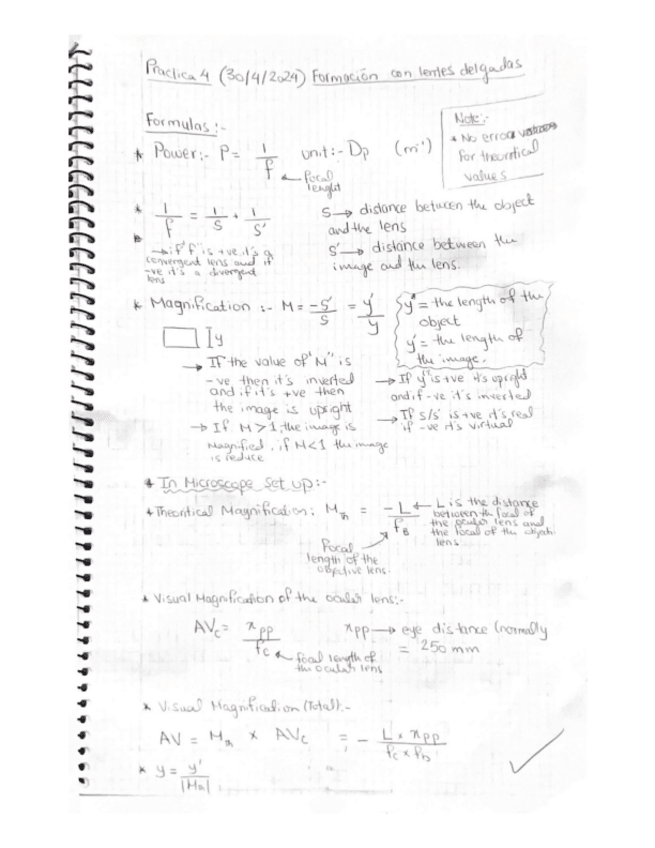 Practica 4 (30/4/2024) Formacion con lentes delgadas
Formulas:-
Note:-
* No error values
For theoritical
values
* Power:- P = 1/f unit:- Dp (m⁻¹)
← focal
lenght
* 1/f = 1/s + 1/s'
s → distance between the object
and the lens
s' → distance between the
image and the lens.
→ if "f" is +ve it's a
convergent lens and if
-ve it's a divergent
lens
* Magnification :- M = -s'/s = y'/y
y = the length of the
object
y' = the length of
the image.
y
→ If the value of "M" is
-ve then it's inverted
and if it's +ve then
the image is upright
→ If M > 1, the image is
Magnified, if M < 1 the image
is reduce
→ If y' is +ve it's upright
and if -ve it's inverted
→ If s/s' is +ve it's real
if -ve it's virtual
* In Microscope Set up:-
* Theoritical Magnification: M_th = -L/f_B
← L is the distance
between the focal of
the ocular lens and
the focal of the object
lens.
Focal
length of the
objective lens.
* Visual Magnification of the ocular lens:-
AVc = xpp/fc
xpp → eye distance (normally
= 250 mm
← focal length of
the ocular lens
* Visual Magnification (Total):-
AV = M_th × AVc = - L × xpp / fc × fb
* y = y'/|M|